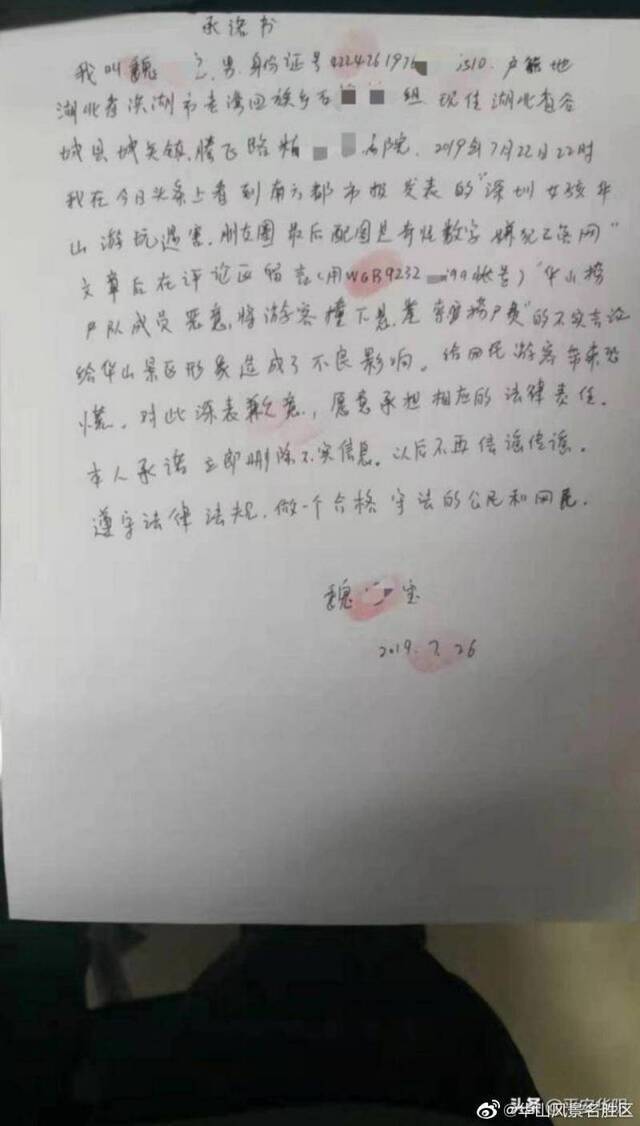 承诺书
我叫魏 之,男,身份证号4224261976 1510.户籍地
湖北省洪湖市老湾回族乡石 组 现住湖北省谷
城县城关镇腾飞路 名院.2019年7月22日22时
我在今日头条上看到南方都市报发表的"深圳女孩华
山游玩遇害,朋友圈最后配图是奇怪数字 嫌犯已落网"
文章后在评论区留言(用WGB9232 199账号)"华山捞
尸队成员恶意将游客撞下悬崖索要捞尸费"的不实言论
给华山景区形象造成了不良影响。给网民游客带来恐
慌。对此深表歉意,愿意承担相应的法律责任。
本人承诺立即删除不实信息。以后不再信谣传谣。
遵守法律法规.做一个合格守法的公民和网民.
魏 宝
2019.7.26
头条@平安华阴
@华山风景名胜区